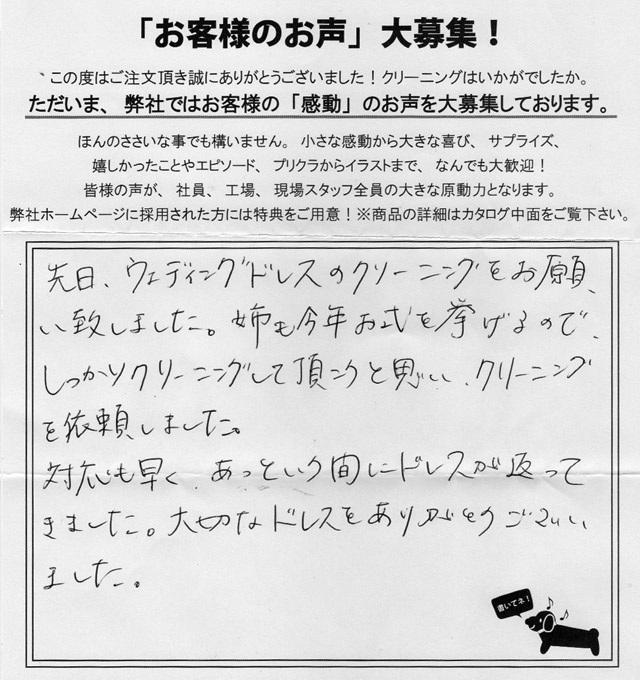 「お客様のお声」大募集！
この度はご注文頂き誠にありがとうございました！クリーニングはいかがでしたか。
ただいま、弊社ではお客様の「感動」のお声を大募集しております。
ほんのささいな事でも構いません。小さな感動から大きな喜び、サプライズ、
嬉しかったことやエピソード、プリクラからイラストまで、なんでも大歓迎！
皆様の声が、社員、工場、現場スタッフ全員の大きな原動力となります。
弊社ホームページに採用された方には特典をご用意！※商品の詳細はカタログ中面をご覧下さい。
先日、ウェディングドレスのクリーニングをお願
い致しました。姉も今年お式を挙げるので、
しっかりクリーニングして頂こうと思い、クリーニング
を依頼しました。
対応も早く、あっという間にドレスが返って
きました。大切なドレスをありがとうございい
ました。
書いてネ！